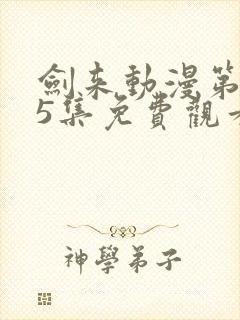 劍来動漫第
5集免費觀看
神學弟子